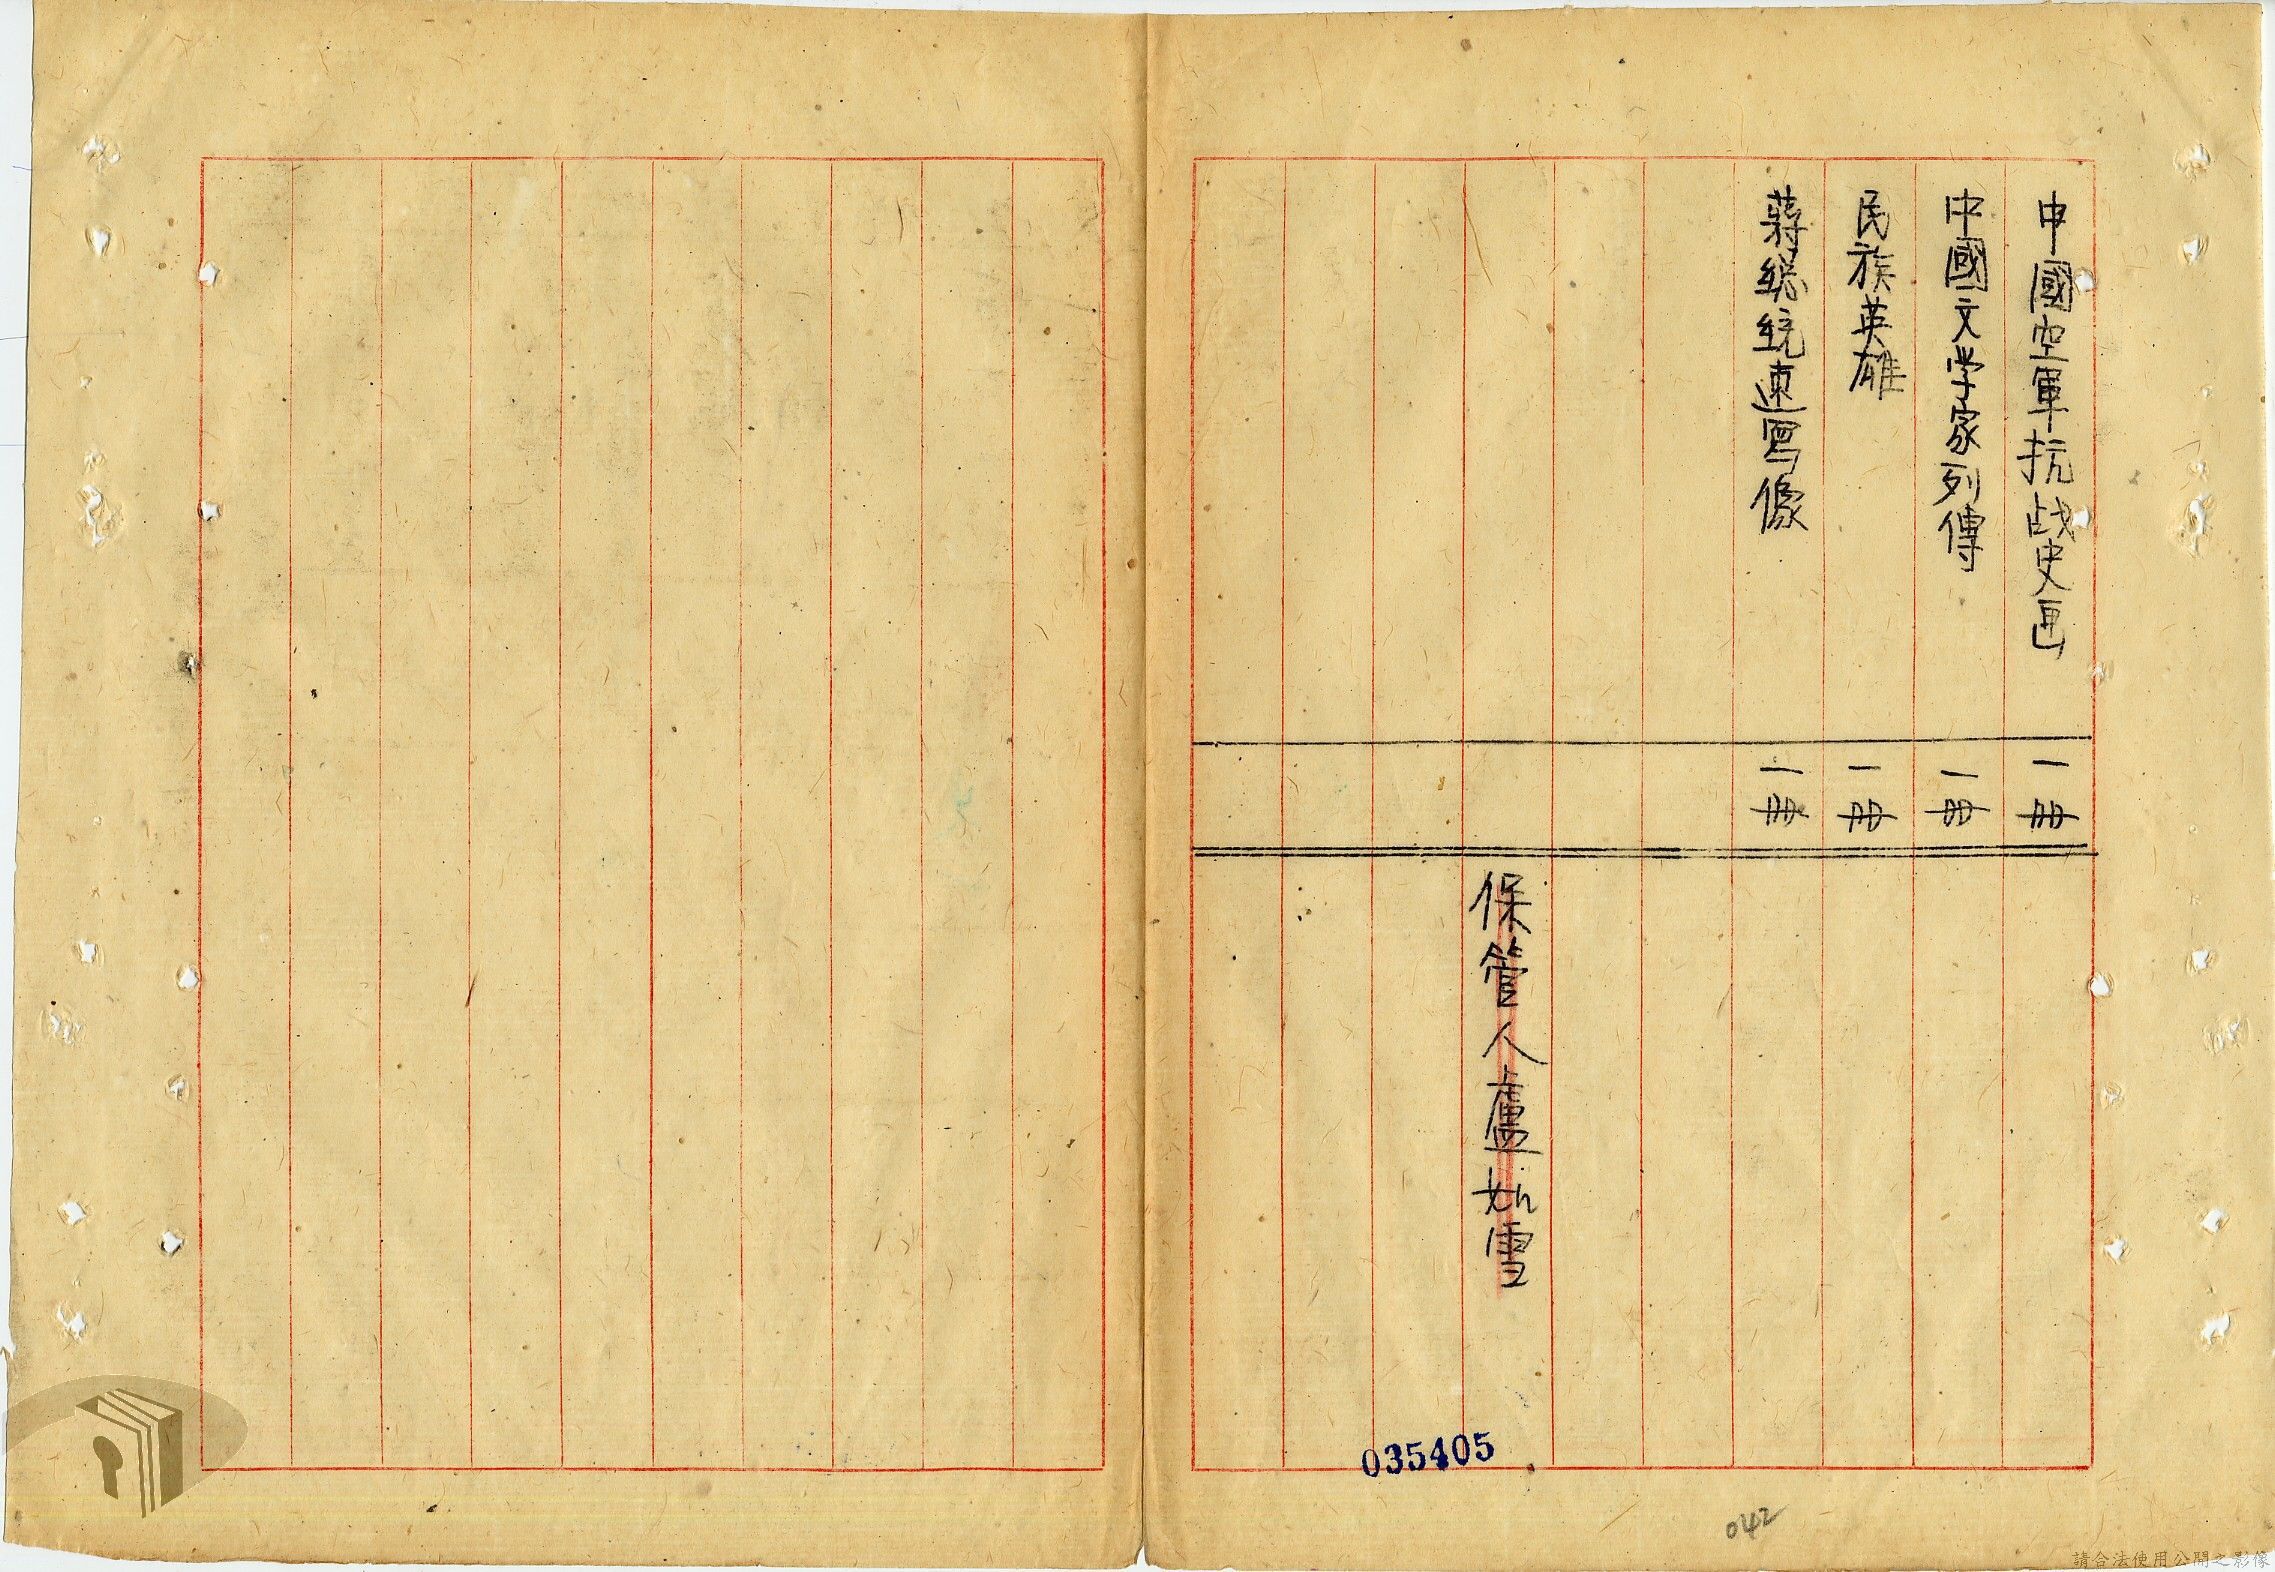 中國空軍抗战史画 一册
中國文学家列傳 一册
民族英雄 一册
蔣総統速寫像 一册
保管人盧如雪
035405
042
請合法使用公開之影像